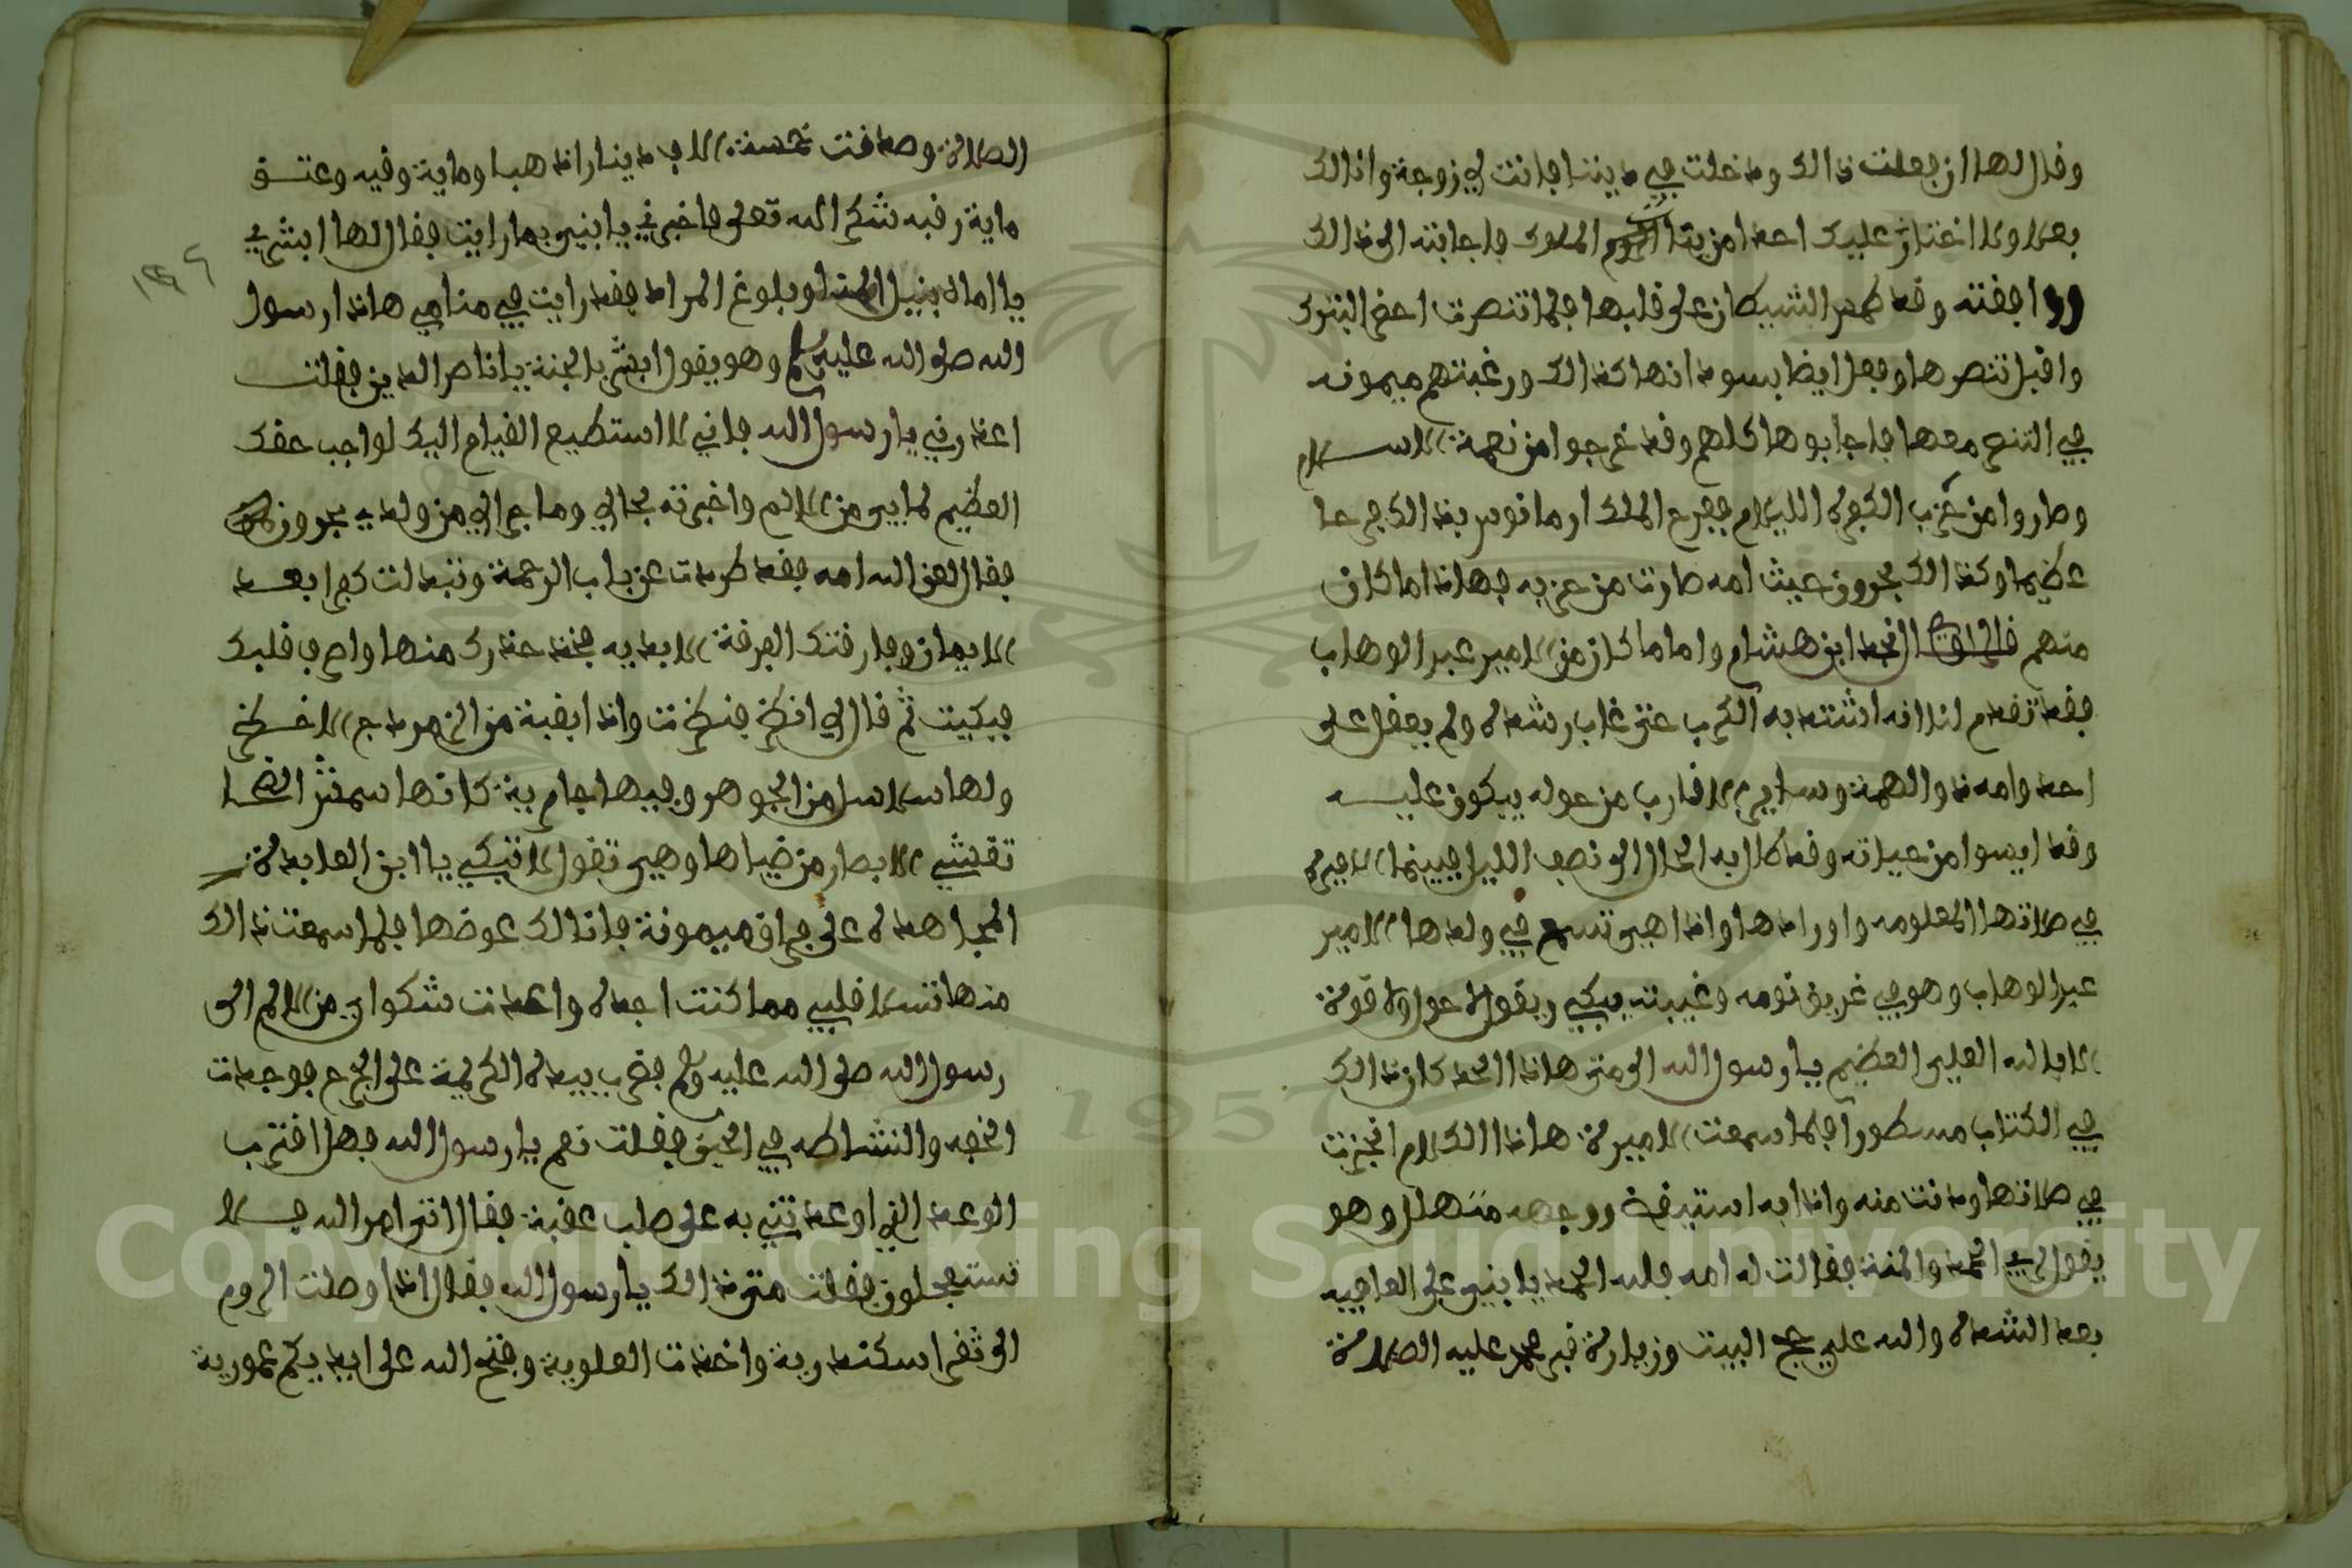 وقال لها ان فعلت ذالك ودخلت في ديننا فانت لي زوجة وانا لك
بعلا ولا اختار عليك احدا من بنات الروم الملوك فاجابته الى ذالك
ووافقته وقد طمس الشيطان على قلبها فلما تنصرت احضر البترك
واقبل تنصرها وفعل ايضا بسودانها كذالك ورغبتهم ميمونه
في التنصر معها فاجابوها كلهم وقد خرجوا من نعمة الاسلام
وصاروا من حزب الكفرة الليام ففرح الملك ارمانوس بذالك فرحا
عظيما وكذالك بحرون حيث امه صارت من حزبه فهاذا ما كان
منهم قال الراوي النجد ابن هشام واما ما كان من الامير عبد الوهاب
فقد تقدم لنا انه اشتد به الكرب حتى غاب رشده ولم يعقل على
احد وامه ذو الهمة وساير الاقارب من حوله يبكون عليه
وقد ايسوا من حياته وقد طال به الحال الى نصف الليل فبينما الاميرة
في صلاتها المعلومه واورادها واذا هي تسمع في ولدها الامير
عبد الوهاب وهو في غريق نومه وغيبته يبكي ويقول لا حول ولا قوة
الا بالله العلي العظيم يا رسول الله الى متى هاذا الجد كان ذالك
في الكتاب مسطورا فلما سمعت الاميرة هاذا الكلام انجزت
في صلاتها ودنت منه واذا به استيقض ووجهه متهلل وهو
يقول لله الحمد والمنة فقالت له امه فلله الحمد يا بني على العافيه
بعد الشده والله علي حج البيت وزيارة قبر محمد عليه الصلاة
الصلاة وصدقت خمسة الاف دينار اذهبا وماية وقيه وعتق
ماية رقبه شكرا لله تعلى فاخبرني يا بني بما رايت فقال لها ابشري
يا اماه بنيل المنا وبلوغ المراد فقد رايت في منامي هاذا رسول
الله صلى الله عليه وسلم وهو يقول ابشر بالجنة يا ناصر الدين فقلت
اعذرني يا رسول الله فاني لا استطيع القيام اليك لواجب حقك
العظيم لما بي من الالم واخبرته بحالي وما جرا لي من ولدي بحرون
فقال لعن الله امه فقد طردت عن باب الرحمة وتبدلت كفرا بعد
الايمان وفارقتك الفرقة الابديه فخذ حذرك منها واصرف قلبك
فبكيت ثم قال لي انظر فنظرت واذا بقبة من الزمرد الاخضر
ولها سلاسل من الجوهر وفيها جارية كانها شمس الضحا
تغشي الابصار من ضياها وهي تقول لا تبكي يا ابن العابدة
المجاهدة على فراق ميمونة فانا لك عوضها فلما سمعت ذالك
منها تسلا قلبي مما كنت اجده واعدت شكواي من الالم الى
رسول الله صلى الله عليه وسلم فضرب بيده الكريمة على الجرح فوجدت
الخفه والنشاطه في الحين فقلت نعم يا رسول الله فهل اقترب
الوعد الذي اوعدتني به على صلب عقبة فقال اتى امر الله فلا
تستعجلون فقلت متى ذالك يا رسول الله فقال اذا وصلت الروم
الى ثغر اسكندرية واخذت العلوية وفتح الله على ايديكم عمورية